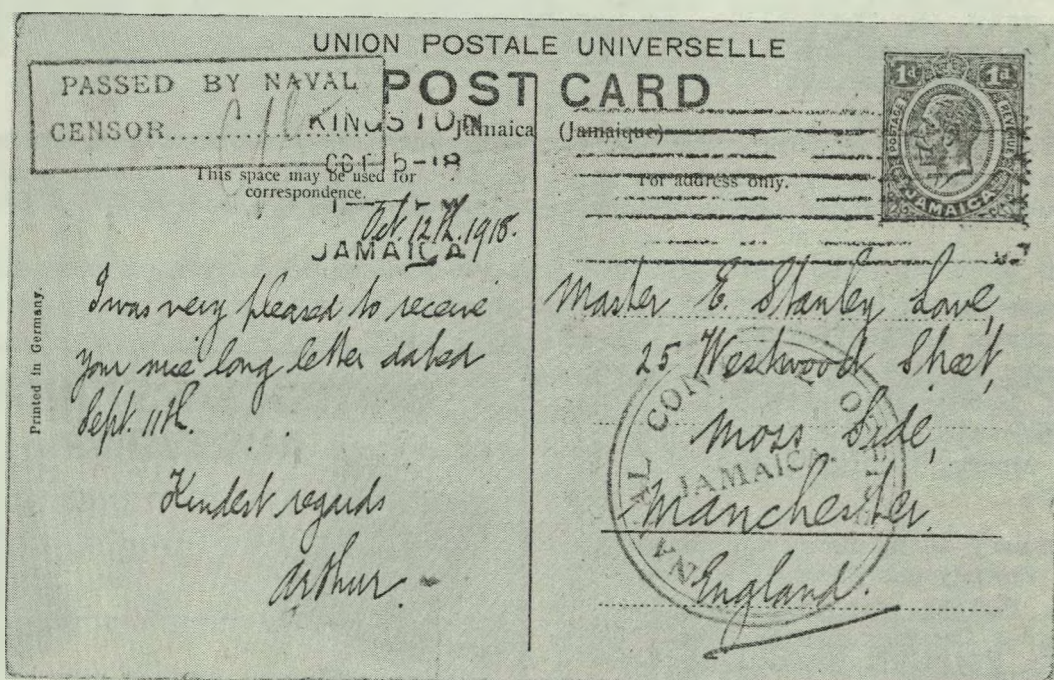 UNION POSTALE UNIVERSELLE
POST CARD
PASSED BY NAVAL
CENSOR
KINGSTON
Jamaica (Jamaique)
OCT 15-18
This space may be used for
correspondence.
For address only.
JAMAICA
1d 1d
POSTAGE & REVENUE
JAMAICA
Oct. 12th. 1918.
I was very pleased to receive
your nice long letter dated
Sept. 11th.
Kindest regards
Arthur.
Printed in Germany.
Master E. Stanley Love,
25 Westwood Street,
Moss Side,
Manchester.
England.
NAVAL CONTROL OFFICE
JAMAICA.